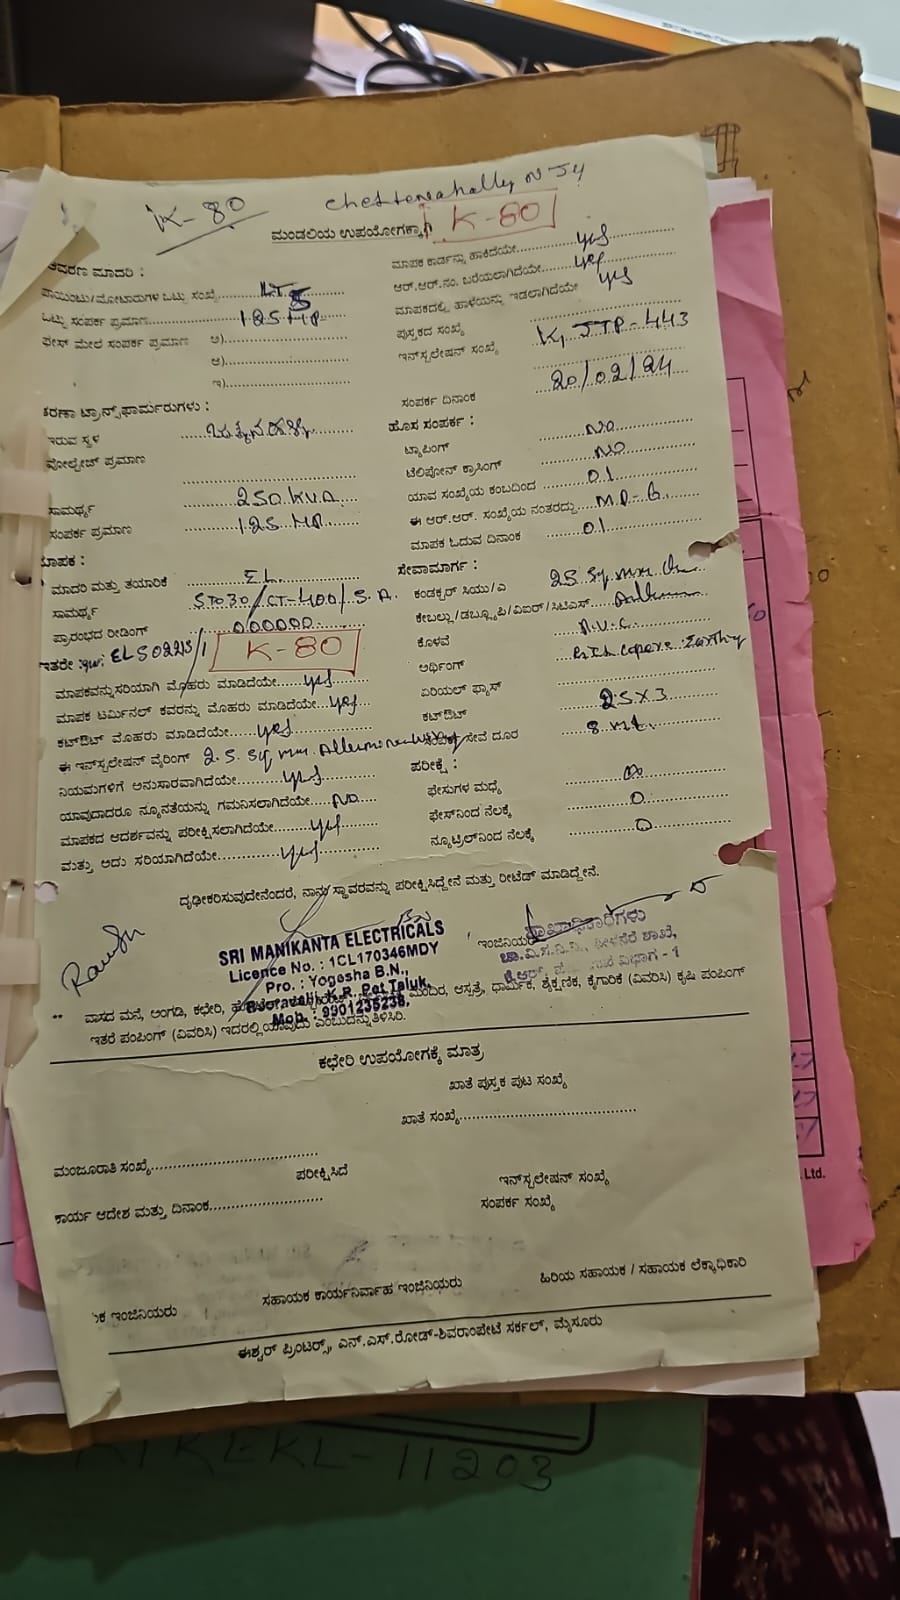 K-80
K-80
ಮಂಡಲಿಯ ಉಪಯೋಗಕ್ಕಾಗಿ
ಮಾದರಿ :
ಪಾಯಿಂಟು/ಮೋಟಾರುಗಳ ಒಟ್ಟು ಸಂಖ್ಯೆ
ಒಟ್ಟು ಸಂಪರ್ಕ ಪ್ರಮಾಣ 125 HP
ಫೇಸ್ ಮೇಲೆ ಸಂಪರ್ಕ ಪ್ರಮಾಣ ಅ)
ಆ)
ಇ)
ಟ್ರಾನ್ಸ್‌ಫಾರ್ಮರುಗಳು :
ಇರುವ ಸ್ಥಳ
ವೋಲ್ಟೇಜ್ ಪ್ರಮಾಣ
ಸಾಮರ್ಥ್ಯ 250 KVA
ಸಂಪರ್ಕ ಪ್ರಮಾಣ 125 HP
ಮಾಪಕ :
ಮಾದರಿ ಮತ್ತು ತಯಾರಿಕೆ EL
ಸಾಮರ್ಥ್ಯ CT-400/5 A.
ಪ್ರಾರಂಭದ ರೀಡಿಂಗ್ 000000
ಇತರೇ
K-80
ಮಾಪಕವನ್ನು ಸರಿಯಾಗಿ ಮೊಹರು ಮಾಡಿದೆಯೇ yes
ಮಾಪಕ ಟರ್ಮಿನಲ್ ಕವರನ್ನು ಮೊಹರು ಮಾಡಿದೆಯೇ yes
ಕಟ್‌ಔಟ್ ಮೊಹರು ಮಾಡಿದೆಯೇ yes
ಈ ಇನ್‌ಸ್ಟಲೇಷನ್ ವೈರಿಂಗ್ 2.5 Sq mm
ನಿಯಮಗಳಿಗೆ ಅನುಸಾರವಾಗಿದೆಯೇ yes
ಯಾವುದಾದರೂ ನ್ಯೂನತೆಯನ್ನು ಗಮನಿಸಲಾಗಿದೆಯೇ No
ಮಾಪಕದ ಆದರ್ಶವನ್ನು ಪರೀಕ್ಷಿಸಲಾಗಿದೆಯೇ yes
ಮತ್ತು ಅದು ಸರಿಯಾಗಿದೆಯೇ yes
ಮಾಪಕ ಕಾರ್ಡನ್ನು ಹಾಕಿದೆಯೇ yes
ಆರ್.ಆರ್.ನಂ. ಬರೆಯಲಾಗಿದೆಯೇ yes
ಮಾಪಕದಲ್ಲಿ ಹಾಳೆಯನ್ನು ಇಡಲಾಗಿದೆಯೇ yes
ಪುಸ್ತಕದ ಸಂಖ್ಯೆ
ಇನ್‌ಸ್ಟಲೇಷನ್ ಸಂಖ್ಯೆ JTP-443
ಸಂಪರ್ಕ ದಿನಾಂಕ 20/02/24
ಹೊಸ ಸಂಪರ್ಕ :
ಟ್ಯಾಪಿಂಗ್ No
ಟೆಲಿಪೋನ್ ಕ್ರಾಸಿಂಗ್ No
ಯಾವ ಸಂಖ್ಯೆಯ ಕಂಬದಿಂದ 01
ಈ ಆರ್.ಆರ್. ಸಂಖ್ಯೆಯ ನಂತರದ್ದು
ಮಾಪಕ ಓದುವ ದಿನಾಂಕ 01
ಸೇವಾಮಾರ್ಗ :
ಕಂಡಕ್ಟರ್ ಸಿಯು/ಎ 25 Sq mm
ಕೇಬಲ್ಲು/ಡಬ್ಲ್ಯೂಪಿ/ವಿಐಆರ್/ಸಿಟಿಎಸ್
ಕೊಳವೆ
ಅರ್ಥಿಂಗ್
ಏರಿಯಲ್ ಫ್ಯಾಸ್
ಕಟ್‌ಔಟ್ 25X3
ಸೇವೆ ದೂರ 8 mt.
ಪರೀಕ್ಷೆ :
ಫೇಸುಗಳ ಮಧ್ಯೆ
ಫೇಸ್‌ನಿಂದ ನೆಲಕ್ಕೆ 0
ನ್ಯೂಟ್ರಲ್‌ನಿಂದ ನೆಲಕ್ಕೆ 0
ದೃಢೀಕರಿಸುವುದೇನೆಂದರೆ, ನಾನು ಸ್ಥಾವರವನ್ನು ಪರೀಕ್ಷಿಸಿದ್ದೇನೆ ಮತ್ತು ರೀಟೆಡ್ ಮಾಡಿದ್ದೇನೆ.
SRI MANIKANTA ELECTRICALS
Licence No. : 1CL170346MDY
Pro. : Yogesha B.N.,
K.R. Pet Taluk,
Mob. : 9901235238,
ಇಂಜಿನಿಯರ್
ಶಾಖಾಧಿಕಾರಿಗಳು
ಚಾ.ವಿ.ಸ.ನಿ.ನಿ., ಶಾಖೆ,
ವಿಭಾಗ - 1
** ವಾಸದ ಮನೆ, ಅಂಗಡಿ, ಕಛೇರಿ, ಮಂದಿರ, ಆಸ್ಪತ್ರೆ, ಧಾರ್ಮಿಕ, ಶೈಕ್ಷಣಿಕ, ಕೈಗಾರಿಕೆ (ವಿವರಿಸಿ) ಕೃಷಿ ಪಂಪಿಂಗ್
ಇತರೆ ಪಂಪಿಂಗ್ (ವಿವರಿಸಿ) ಇದರಲ್ಲಿ ಯಾವುದು ಎಂಬುದನ್ನು ತಿಳಿಸಿರಿ.
ಕಛೇರಿ ಉಪಯೋಗಕ್ಕೆ ಮಾತ್ರ
ಖಾತೆ ಪುಸ್ತಕ ಪುಟ ಸಂಖ್ಯೆ
ಖಾತೆ ಸಂಖ್ಯೆ
ಮಂಜೂರಾತಿ ಸಂಖ್ಯೆ
ಪರೀಕ್ಷಿಸಿದೆ
ಇನ್‌ಸ್ಟಲೇಷನ್ ಸಂಖ್ಯೆ
ಕಾರ್ಯ ಆದೇಶ ಮತ್ತು ದಿನಾಂಕ
ಸಂಪರ್ಕ ಸಂಖ್ಯೆ
ಇಂಜಿನಿಯರು
ಸಹಾಯಕ ಕಾರ್ಯನಿರ್ವಾಹ ಇಂಜಿನಿಯರು
ಹಿರಿಯ ಸಹಾಯಕ / ಸಹಾಯಕ ಲೆಕ್ಕಾಧಿಕಾರಿ
ಈಶ್ವರ್ ಪ್ರಿಂಟರ್ಸ್, ಎನ್.ಎಸ್.ರೋಡ್-ಶಿವರಾಂಪೇಟೆ ಸರ್ಕಲ್, ಮೈಸೂರು
Ltd.
11203